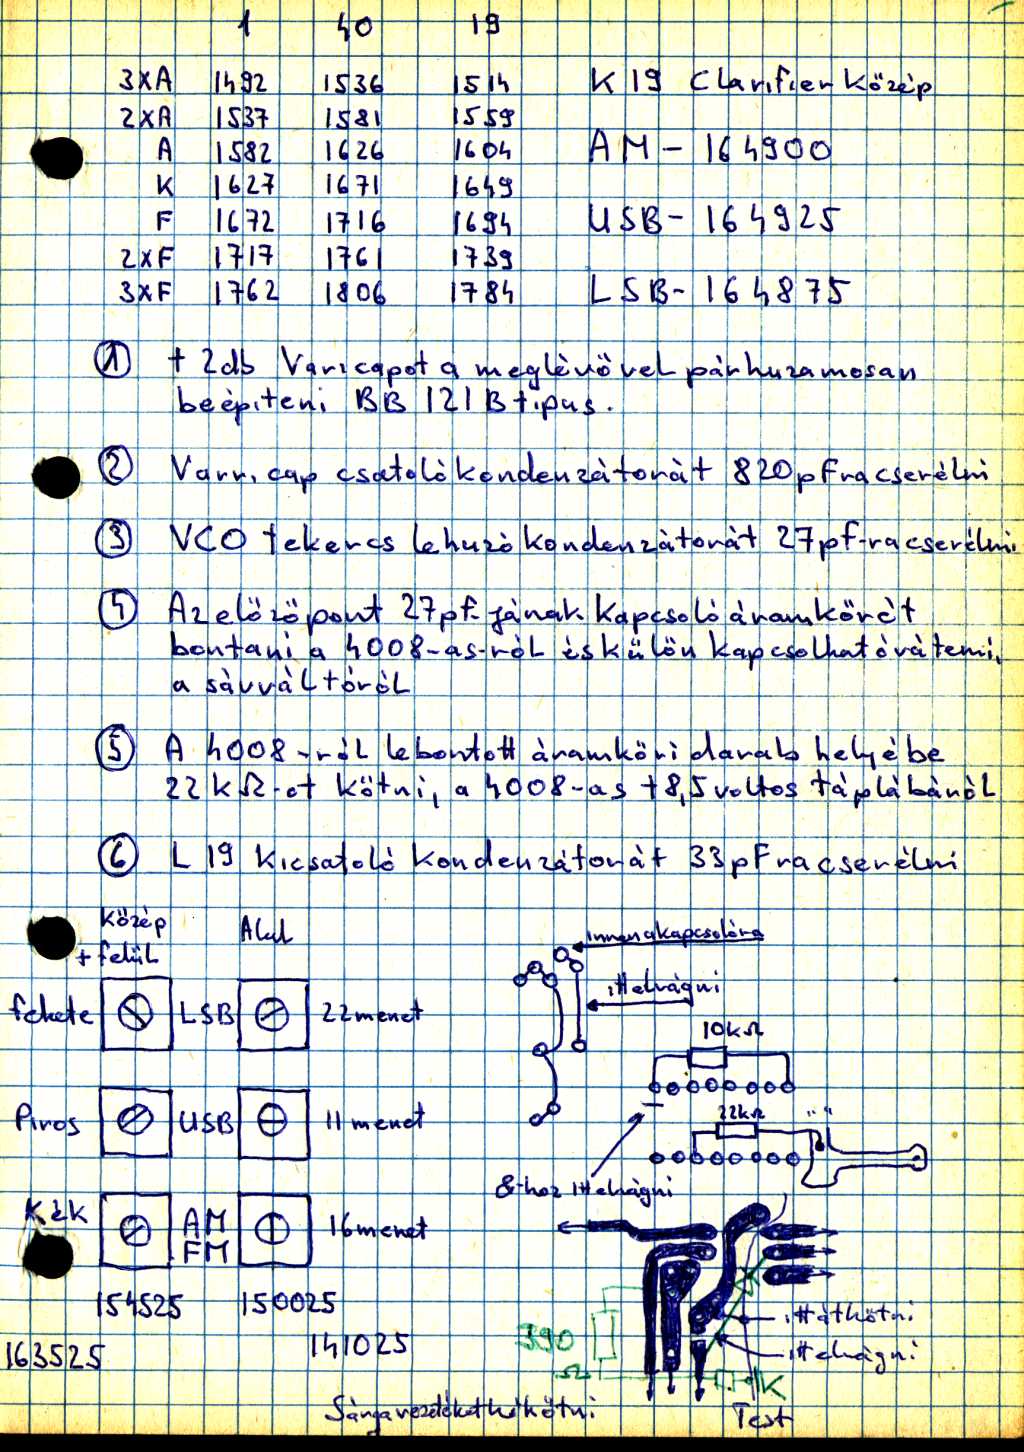 1 40 19
3xA 1492 1536 1514 K 19 Clarifier közép
2xA 1537 1581 1559
A 1582 1626 1604 AM - 164900
K 1627 1671 1649
F 1672 1716 1694 USB - 164925
2xF 1717 1761 1739
3xF 1762 1806 1784 LSB - 164875
1 + 2db Varicapot a meglèvővel párhuzamosan
beépiteni BB 121 B tipus.
2 Varricap csatoló kondenzátorát 820pFra cserélni
3 VCO tekercs lehuzó kondenzátorát 27pf-ra cserélni
4 Az előző pont 27pf-jának kapcsoló áramkörét
bontani a 4008-as-ról és külön kapcsolhatóvá tenni,
a sávváltóról
5 A 4008-ról lebontott áramköri darab helyébe
22kΩ-ot kötni, a 4008-as +8,5 voltos táplábánól
6 L 19 kicsatoló kondenzátorát 33pFra cserélni
közép Alul
+ felül
innen a kapcsolóra
itt elvágni
fekete LSB 22 menet
10kΩ
Piros USB 11 menet
22kΩ
8-hoz itt elvágni
Kék AM 16 menet
FM
154525 150025
itt átkötni
163525 141025
390 Ω
itt elvágni
K
Sárga vezetéket kikötni
Test